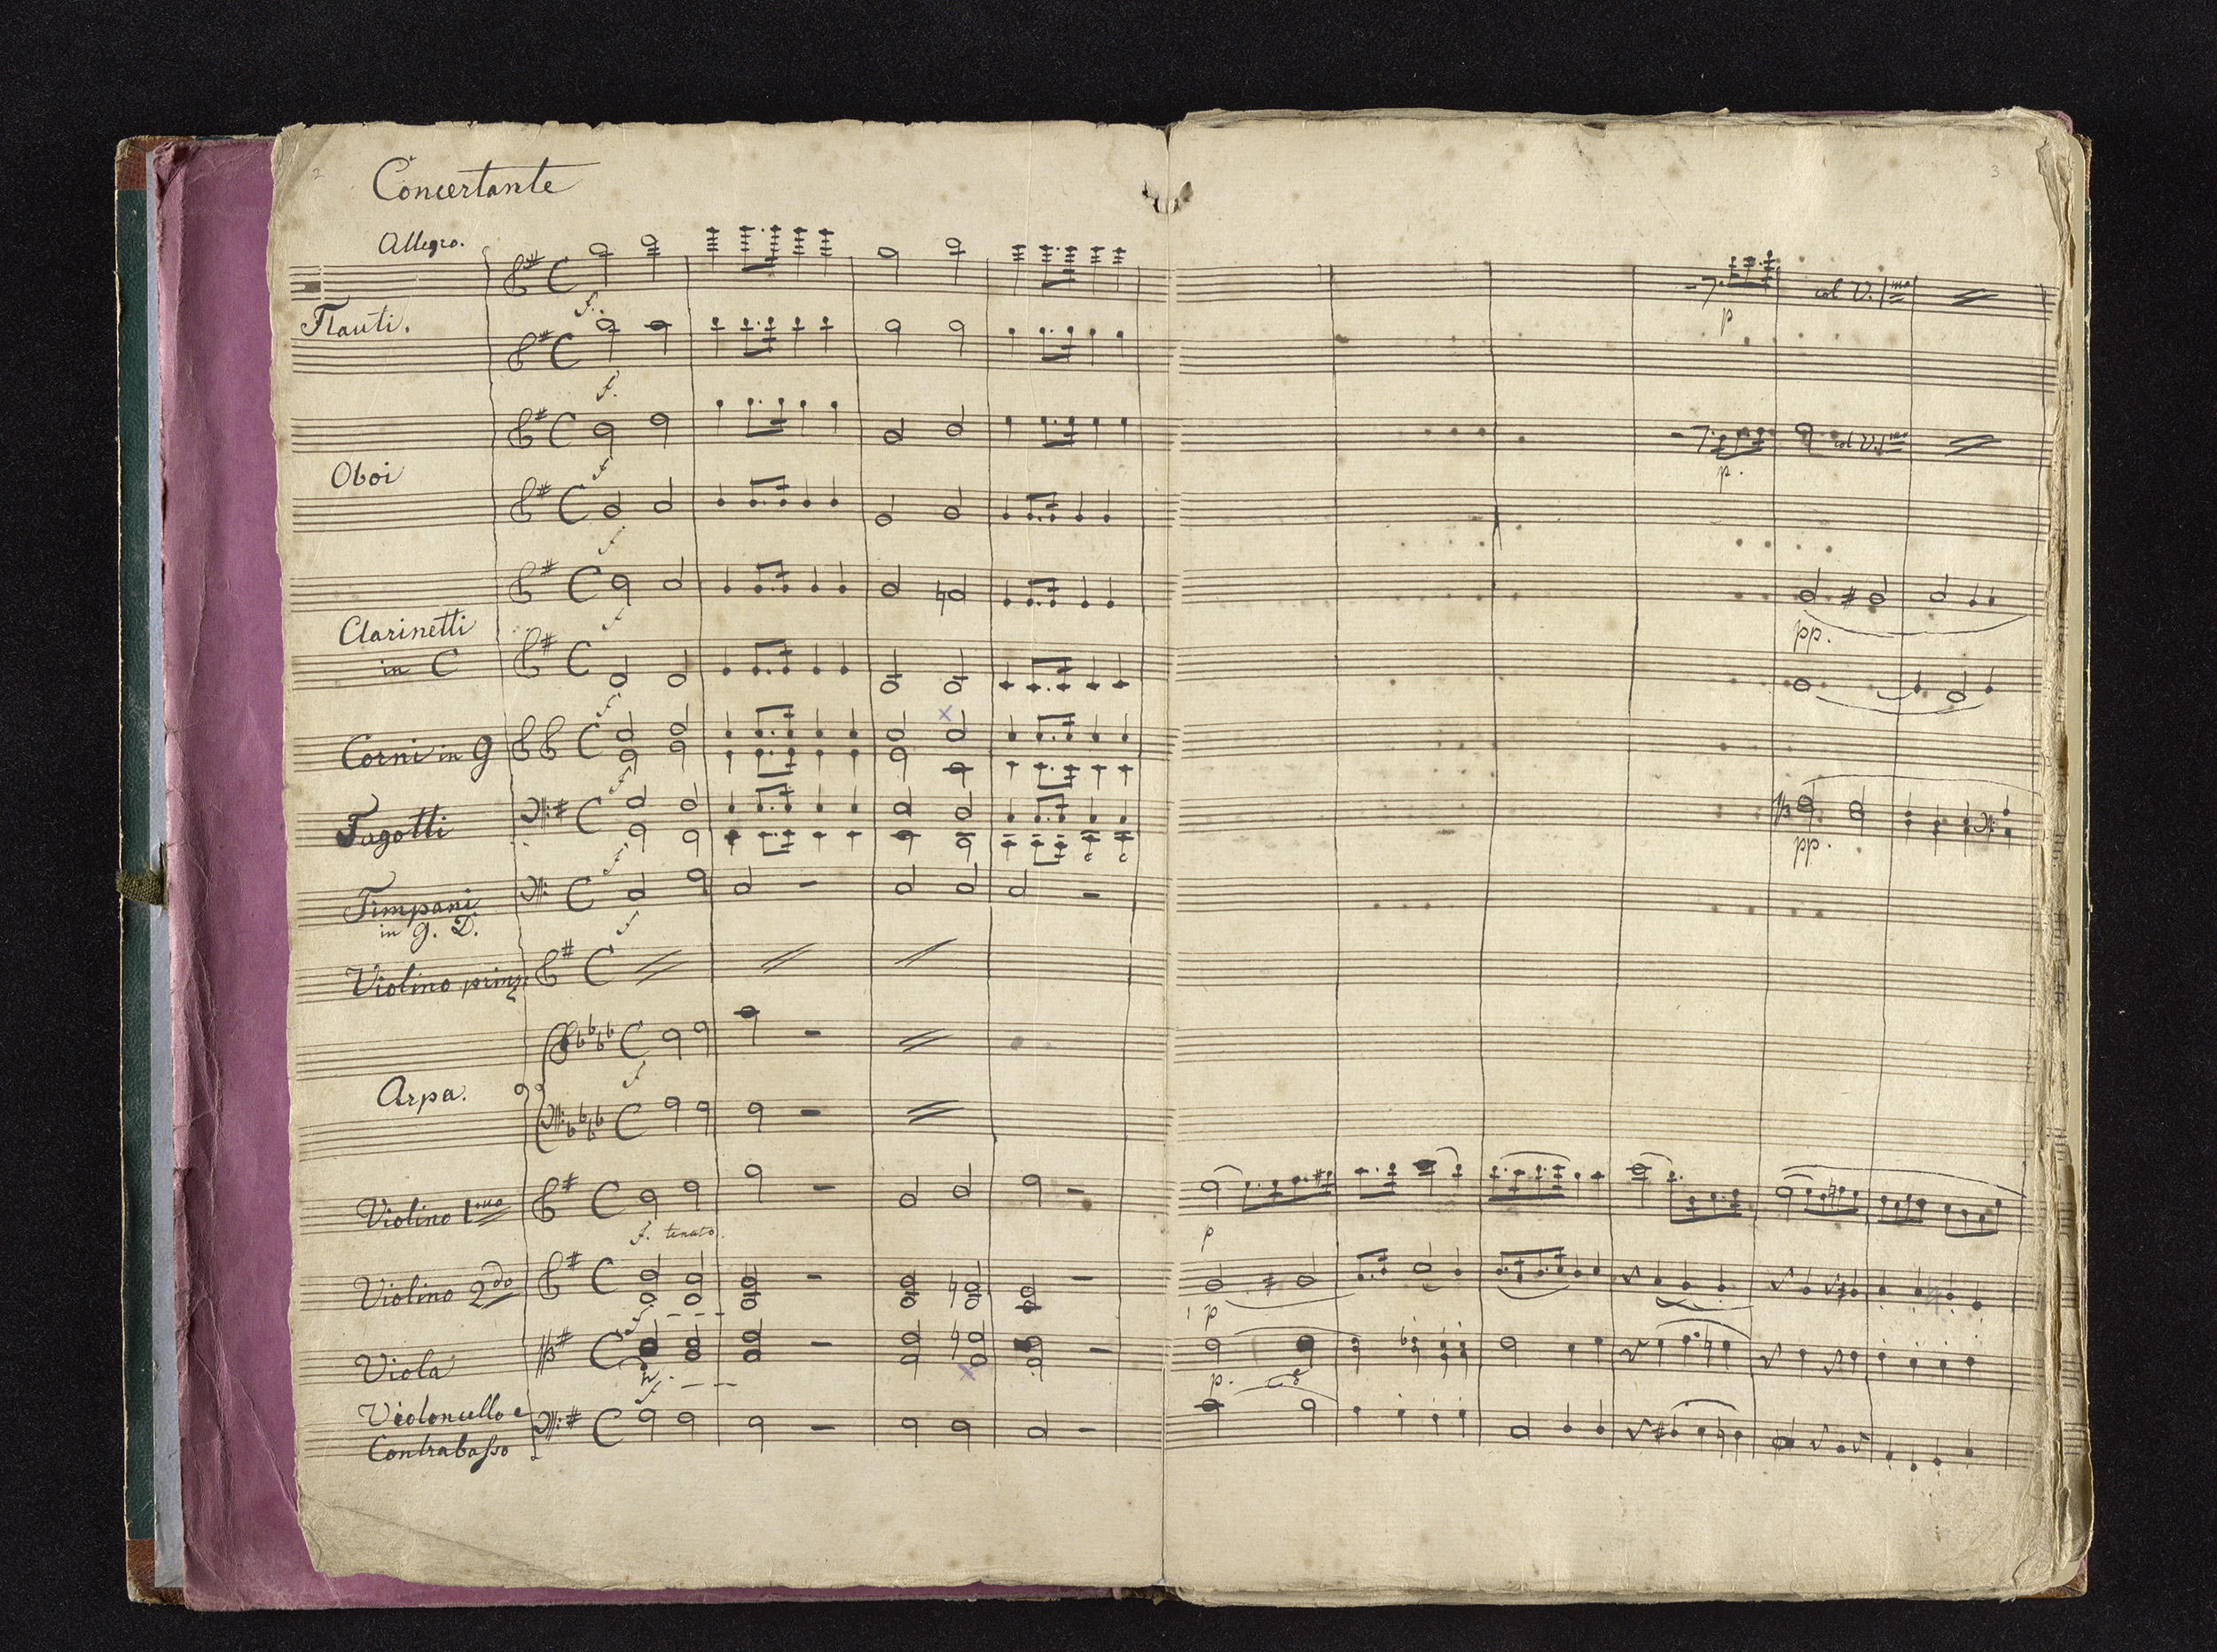 2
Concertante
Allegro.
f.
Flauti.
f.
f
Oboi
f
f
Clarinetti
in C
f
Corni in G
f
Fagotti
f
Timpani
in G. D.
f
Violino prinz:
f
Arpa.
Violino 1mo
f. tenuto.
Violino 2do
f
Viola
f
Violoncello e
Contrabasso
3
p
col V. 1mo
p.
col V. 1mo
pp.
pp.
p
p
p.